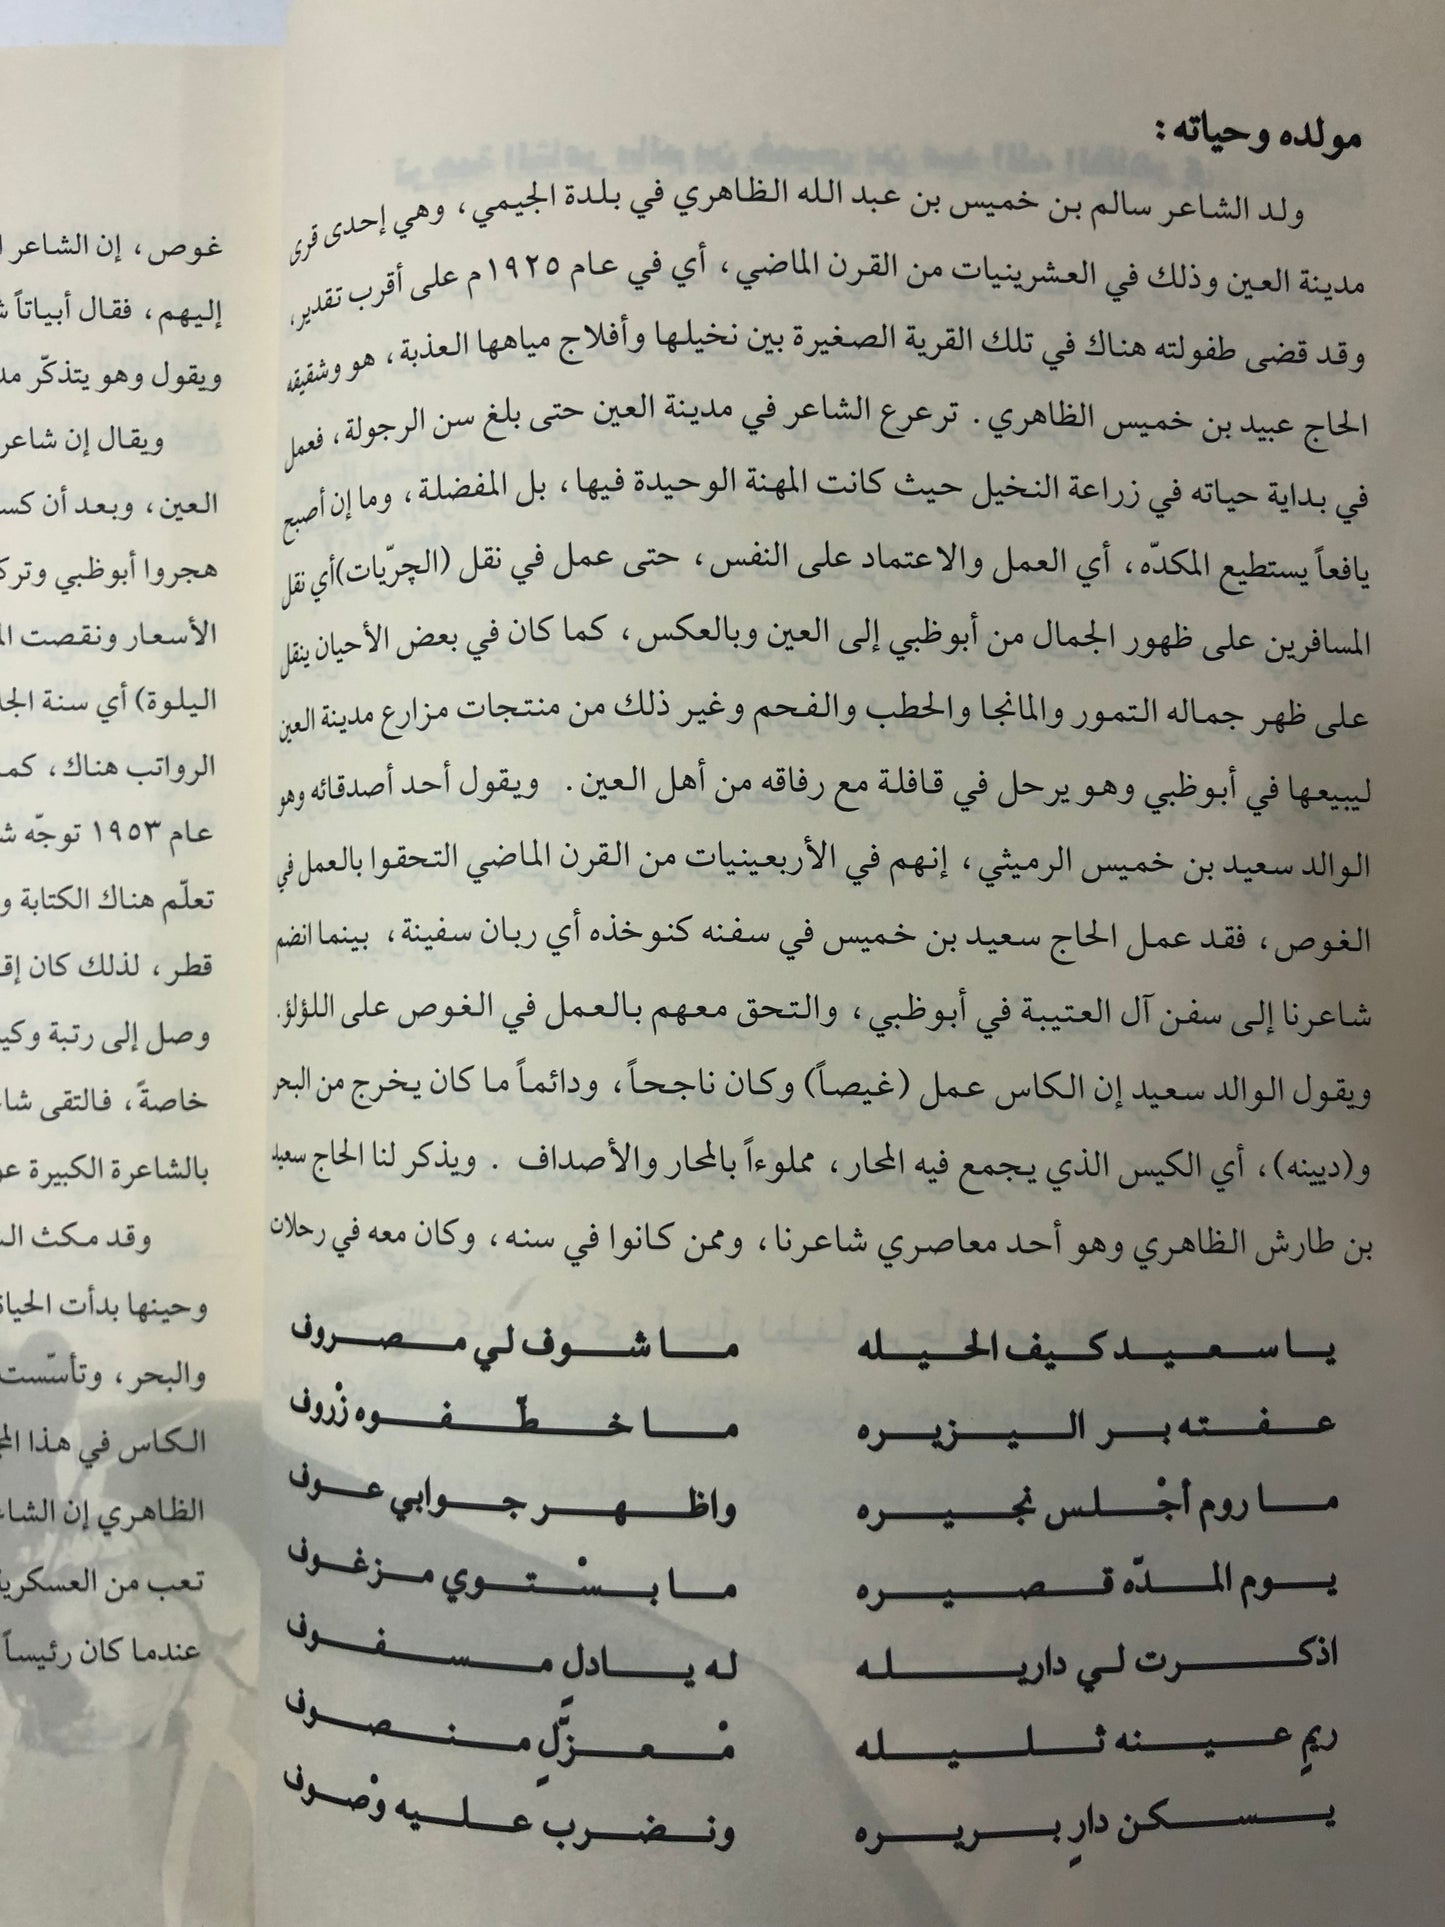 مولده وحياته:
ولد الشاعر سالم بن خميس بن عبد الله الظاهري في بلدة الجيمي، وهي إحدى قرى
مدينة العين وذلك في العشرينيات من القرن الماضي، أي في عام ١٩٢٥م على أقرب تقدير،
وقد قضى طفولته هناك في تلك القرية الصغيرة بين نخيلها وأفلاج مياهها العذبة، هو وشقيقه
الحاج عبيد بن خميس الظاهري. ترعرع الشاعر في مدينة العين حتى بلغ سن الرجولة، فعمل
في بداية حياته في زراعة النخيل حيث كانت المهنة الوحيدة فيها، بل المفضلة، وما إن أصبح
يافعاً يستطيع المكدّه، أي العمل والاعتماد على النفس، حتى عمل في نقل (الچرّيات)أي نقل
المسافرين على ظهور الجمال من أبوظبي إلى العين وبالعكس، كما كان في بعض الأحيان ينقل
على ظهر جماله التمور والمانجا والحطب والفحم وغير ذلك من منتجات مزارع مدينة العين
ليبيعها في أبوظبي وهو يرحل في قافلة مع رفاقه من أهل العين. ويقول أحد أصدقائه وهو
الوالد سعيد بن خميس الرميثي، إنهم في الأربعينيات من القرن الماضي التحقوا بالعمل في
الغوص، فقد عمل الحاج سعيد بن خميس في سفنه كنوخذه أي ربان سفينة، بينما انضم
شاعرنا إلى سفن آل العتيبة في أبوظبي، والتحق معهم بالعمل في الغوص على اللؤلؤ.
ويقول الوالد سعيد إن الكاس عمل (غيصاً) وكان ناجحاً، ودائماً ما كان يخرج من البحر
و(ديينه)، أي الكيس الذي يجمع فيه المحار، مملوءاً بالمحار والأصداف . ويذكر لنا الحاج سعيد
بن طارش الظاهري وهو أحد معاصري شاعرنا، وممن كانوا في سنه، وكان معه في رحلات
يا سعيد كيف الحيله ما شوف لي مصروف
عفته بر اليزيره ما خطّفوه زْروف
ما روم أجْلس نجيره واظهر جوابي عوف
يوم المدّه قصيره ما بسْتوي مزغوف
اذكرت لي داريله له يادلٍ مسفوف
ريمٍ عينه ثليله مْعزّلٍ منصوف
يسكن دارٍ بريره ونضرب عليه وْصوف
غوص، إن الشاعر
إليهم، فقال أبياتاً
ويقول وهو يتذكّر
ويقال إن شاعر
العين، وبعد أن
هجروا أبوظبي
الأسعار ونقصت
اليلوة) أي سنة
الرواتب هناك،
عام ١٩٥٣ توجّه
تعلّم هناك الكتابة
قطر، لذلك كان
وصل إلى رتبة
خاصةً، فالتقى
بالشاعرة الكبيرة
وقد مكث
وحينها بدأت
والبحر، وتأسّست
الكاس في هذا
الظاهري إن
تعب من
عندما كان رئيساً